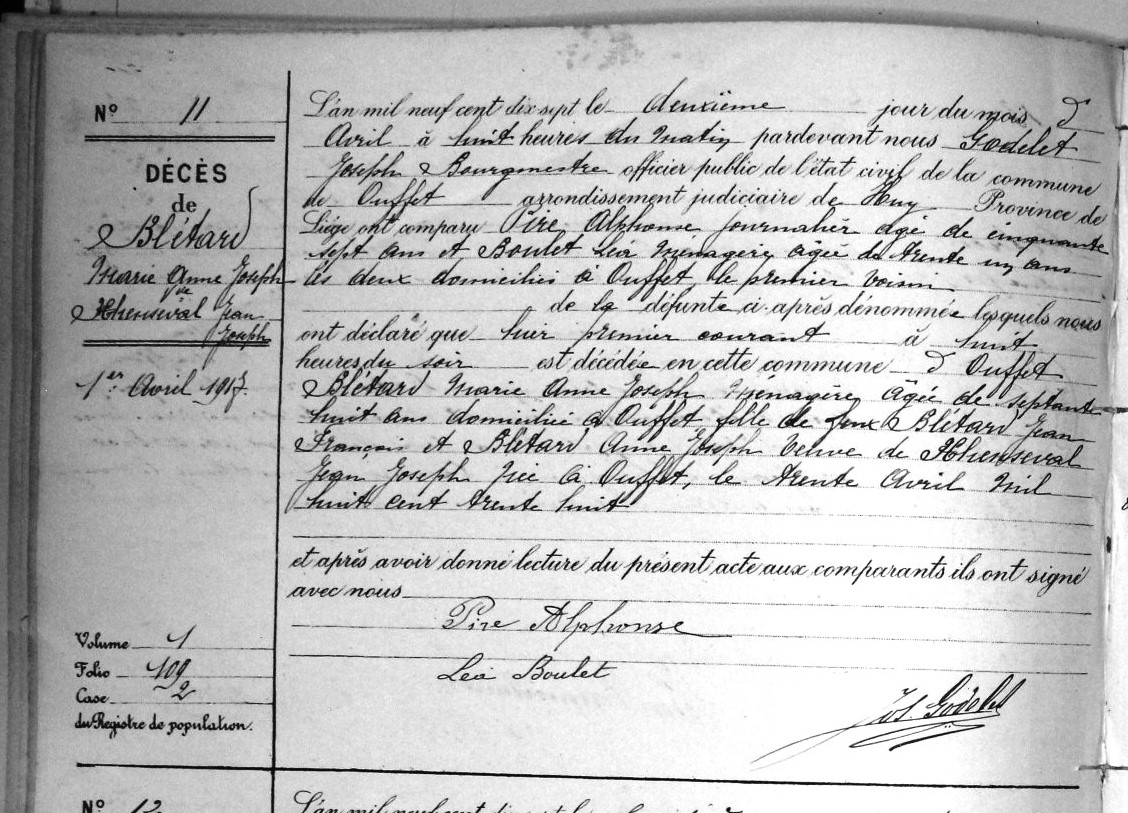 Nº 11
DÉCÈS
de
Blétard
Marie Anne Joseph
Vve
Thenseval Jean
Joseph
1er Avril 1917.
Volume 1
Folio 109
Case 2
du Registre de population.
L'an mil neuf cent dix sept le deuxième jour du mois d'
Avril à huit heures du matin pardevant nous Godelet
Joseph Bourgmestre officier public de l'état civil de la commune
de Ouffet arrondissement judiciaire de Huy Province de
Liége ont comparu Pire Alphonse journalier âgé de cinquante
sept ans et Boulet Léa ménagère âgée de trente un ans
les deux domiciliés à Ouffet le premier voisin
de la défunte ci-après dénommée lesquels nous
ont déclaré que hier premier courant à huit
heures du soir est décédée en cette commune d' Ouffet
Blétard Marie Anne Joseph Ménagère âgée de septante
huit ans domiciliée à Ouffet fille de feux Blétard Jean
François et Blétard Anne Joseph Veuve de Thenseval
Jean Joseph Née à Ouffet, le trente Avril mil
huit cent trente huit
et après avoir donné lecture du présent acte aux comparants ils ont signé
avec nous
Pire Alphonse
Léa Boulet
Jos. Godelet
Nº 12
L'an mil neuf cent